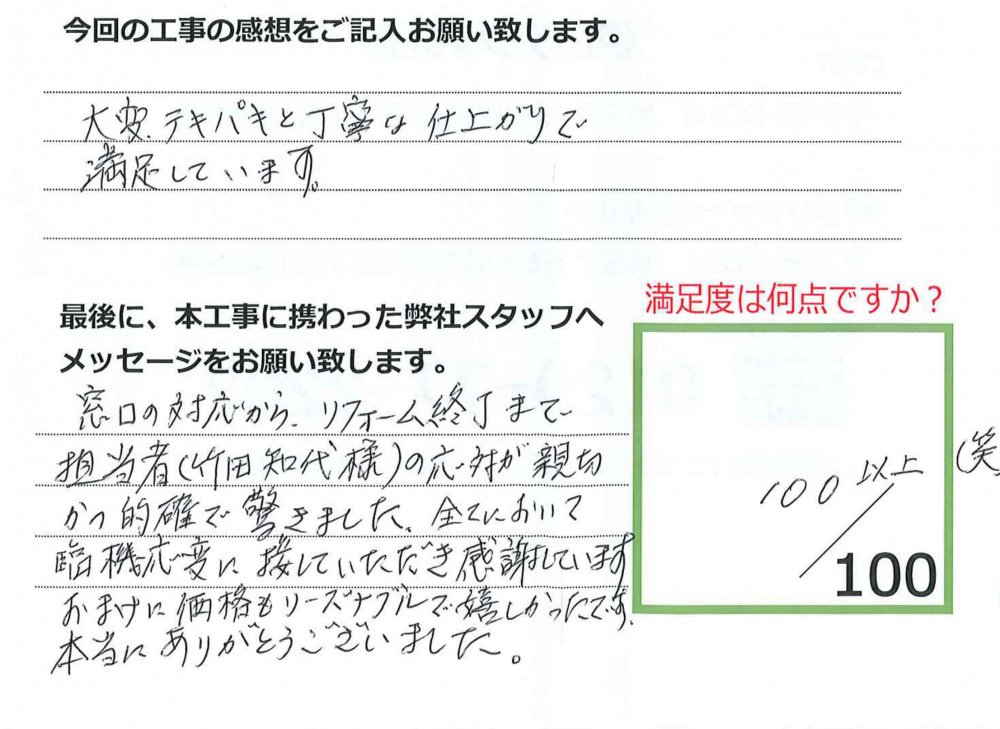 今回の工事の感想をご記入お願い致します。
大変、テキパキと丁寧な仕上がりで
満足しています。
最後に、本工事に携わった弊社スタッフへ
メッセージをお願い致します。
窓口の対応から、リフォーム終了まで
担当者(竹田知代様)の応対が親切
かつ的確で驚きました。全てにおいて
臨機応変に接していただき感謝しています
おまけに価格もリーズナブルで嬉しかったです。
本当にありがとうございました。
満足度は何点ですか?
100以上 (笑
100